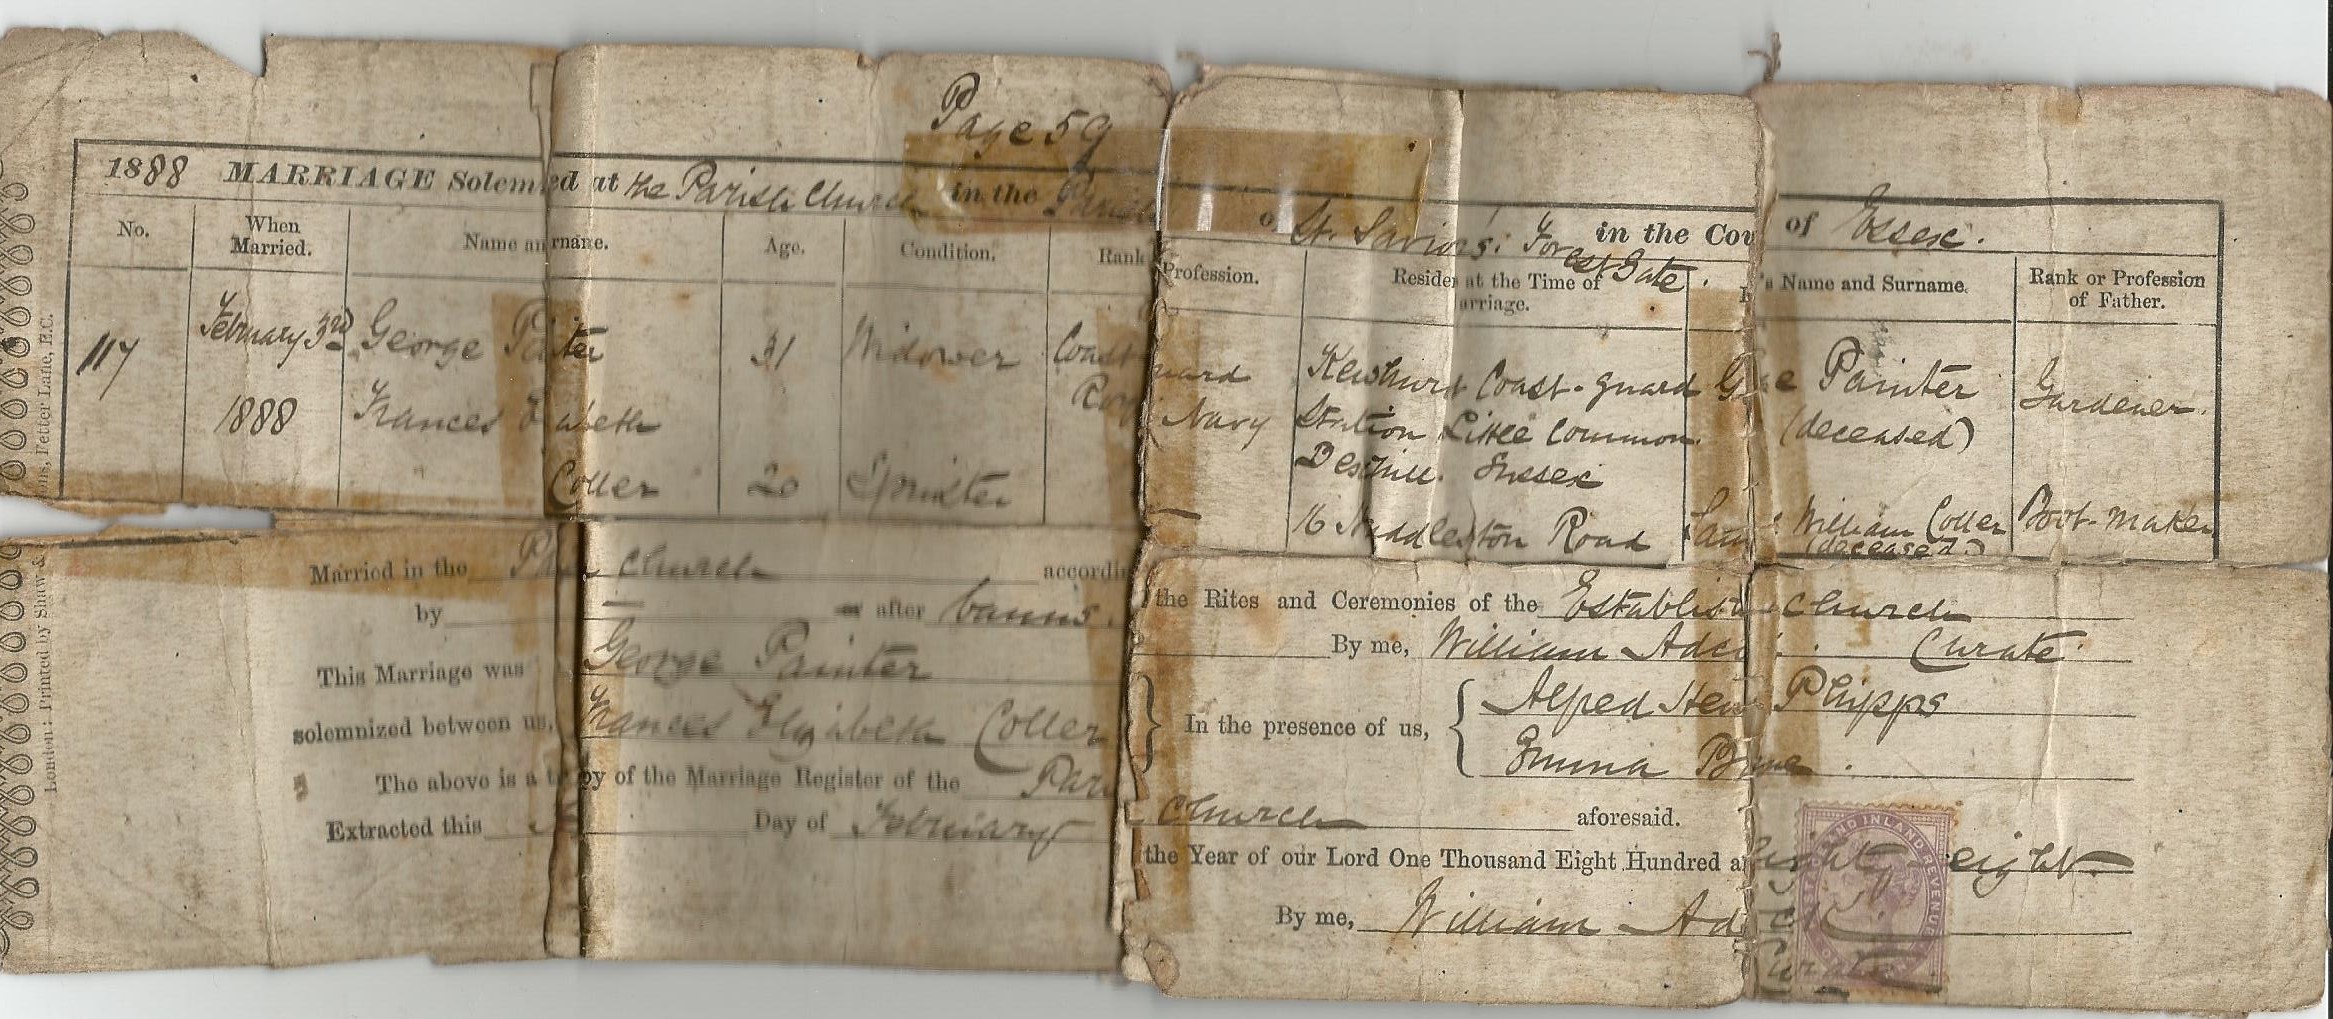 Page 59
1888 MARRIAGE Solem ed at the Parish Church in the Parish o St. Saviors' Forest Gate. in the Cou of Essex.
No. When Married. Name an rname. Age. Condition. Rank Profession. Reside at the Time of arriage. 's Name and Surname. Rank or Profession of Father.
117 February 3rd 1888 George Pa ter 31 Widower Coast uard Roy Navy Kewhurst Coast-guard Station Little Common Bexhill. Sussex G e Painter (deceased) Gardener.
Frances E abeth Coller 20 Spinster — 16 Huddleston Road William Coller (deceased.) Boot-maker
Married in the Pa Church accordi the Rites and Ceremonies of the Establish Church
by — after banns. By me, William Curate.
This Marriage was George Painter Alfred Hen Phipps
solemnized between us, Frances Elizabeth Coller } In the presence of us, { Emma
The above is a t py of the Marriage Register of the Par Church aforesaid.
Extracted this Day of February the Year of our Lord One Thousand Eight Hundred a eighty eight
By me, William Ad
INLAND REVENUE
London: Printed by Shaw & ons, Fetter Lane, E.C.